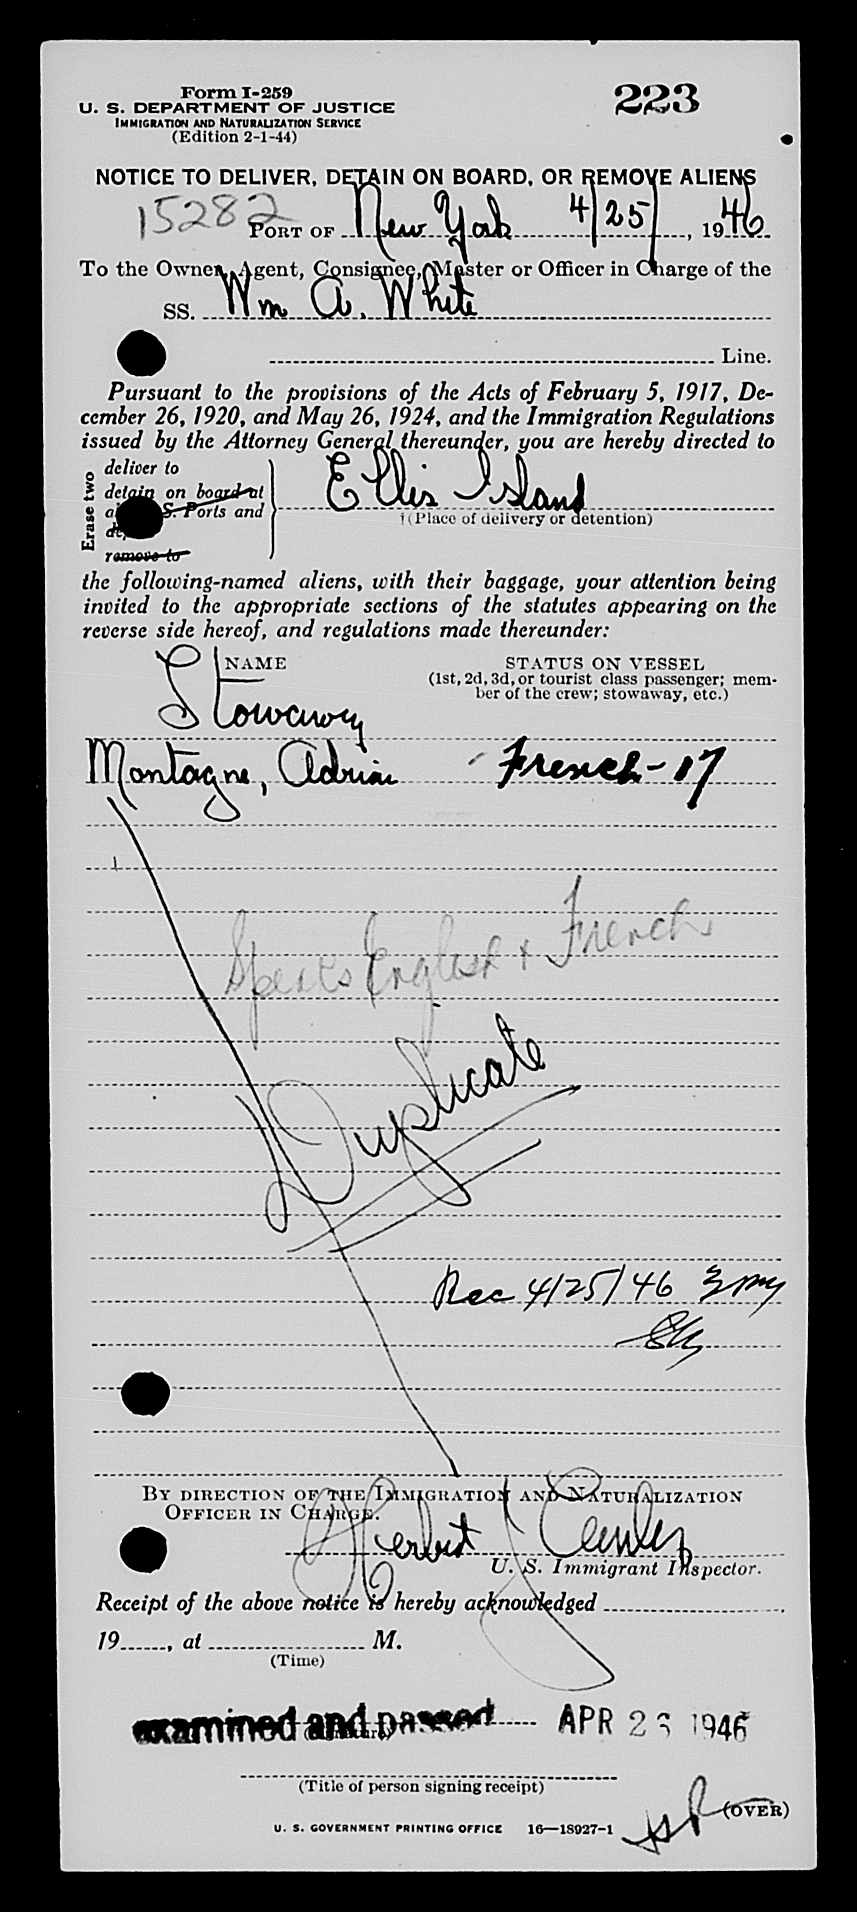 Form I-259
223
U. S. DEPARTMENT OF JUSTICE
IMMIGRATION AND NATURALIZATION SERVICE
(Edition 2-1-44)
NOTICE TO DELIVER, DETAIN ON BOARD, OR REMOVE ALIENS
15282
PORT OF New York 4/25/, 1946
To the Owner, Agent, Consignee, Master or Officer in Charge of the
SS. Wm A. White
Line.
Pursuant to the provisions of the Acts of February 5, 1917, De-
cember 26, 1920, and May 26, 1924, and the Immigration Regulations
issued by the Attorney General thereunder, you are hereby directed to
Erase two
deliver to
detain on board at
S. Ports and
remove to
Ellis Island
†(Place of delivery or detention)
the following-named aliens, with their baggage, your attention being
invited to the appropriate sections of the statutes appearing on the
reverse side hereof, and regulations made thereunder:
NAME
STATUS ON VESSEL
(1st, 2d, 3d, or tourist class passenger; mem-
ber of the crew; stowaway, etc.)
Stowaway
Montagne, French-17
Speaks English + French
Duplicate
Rec 4/25/46
BY DIRECTION OF THE IMMIGRATION AND NATURALIZATION
OFFICER IN CHARGE.
Herbert
U. S. Immigrant Inspector.
Receipt of the above notice is hereby acknowledged
19......, at M.
(Time)
examined and passed APR 1946
(Signature)
(Title of person signing receipt)
(OVER)
U. S. GOVERNMENT PRINTING OFFICE 16—18927-1